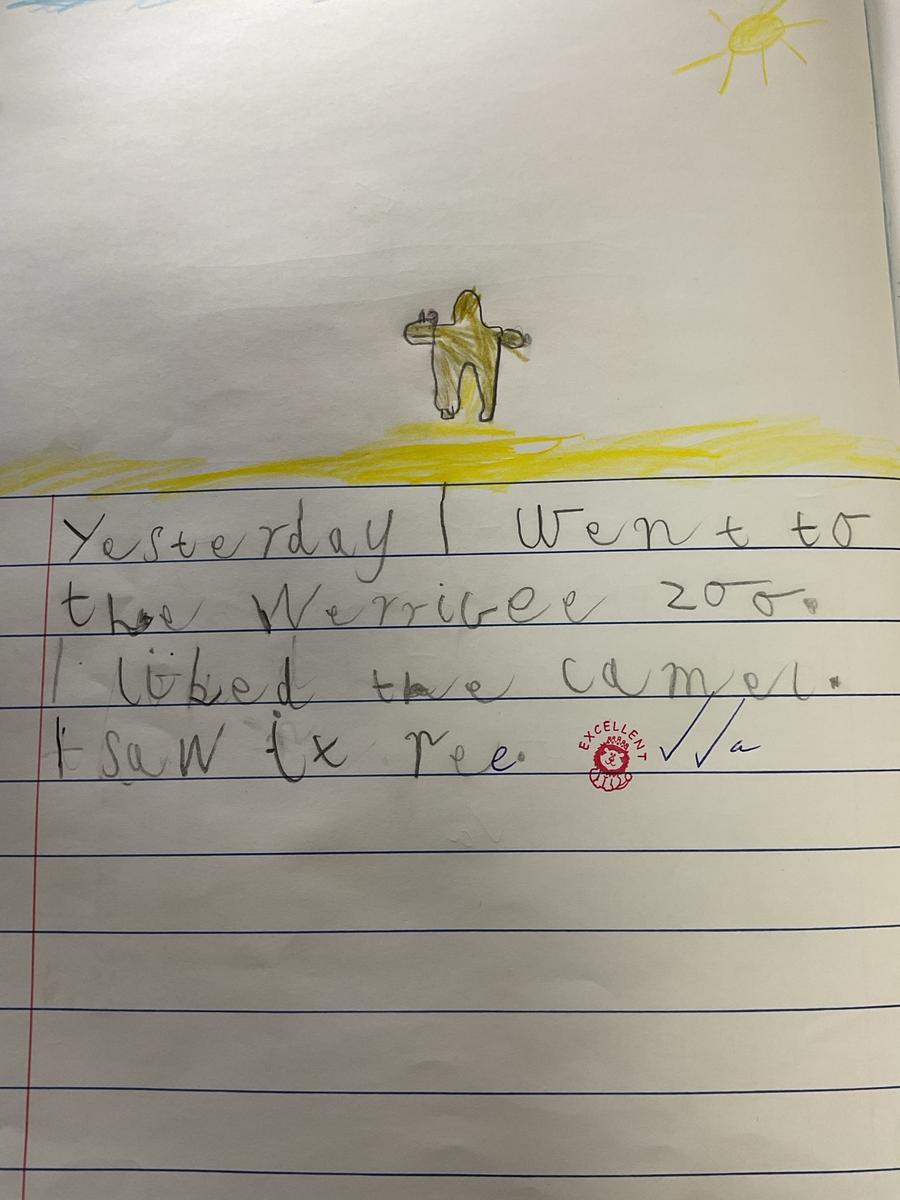 Yesterday I went to
the Werribee zoo.
I liked the camel.
I saw ix pee.
EXCELLENT